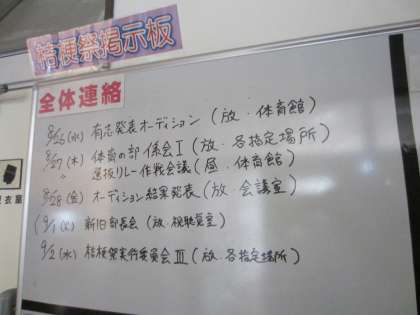 桔梗祭掲示板
全体連絡
8/26(水) 有志発表オーディション(放・体育館)
8/27(木) 体育の部係会Ⅰ(放・各指定場所)
〃 選抜リレー作戦会議(昼・体育館)
8/28(金) オーディション結果発表(放・会議室)
(9/1(火) 新旧部長会(放・視聴覚室)
9/2(水) 桔梗祭実行委員会Ⅲ(放・各指定場所)
衣室